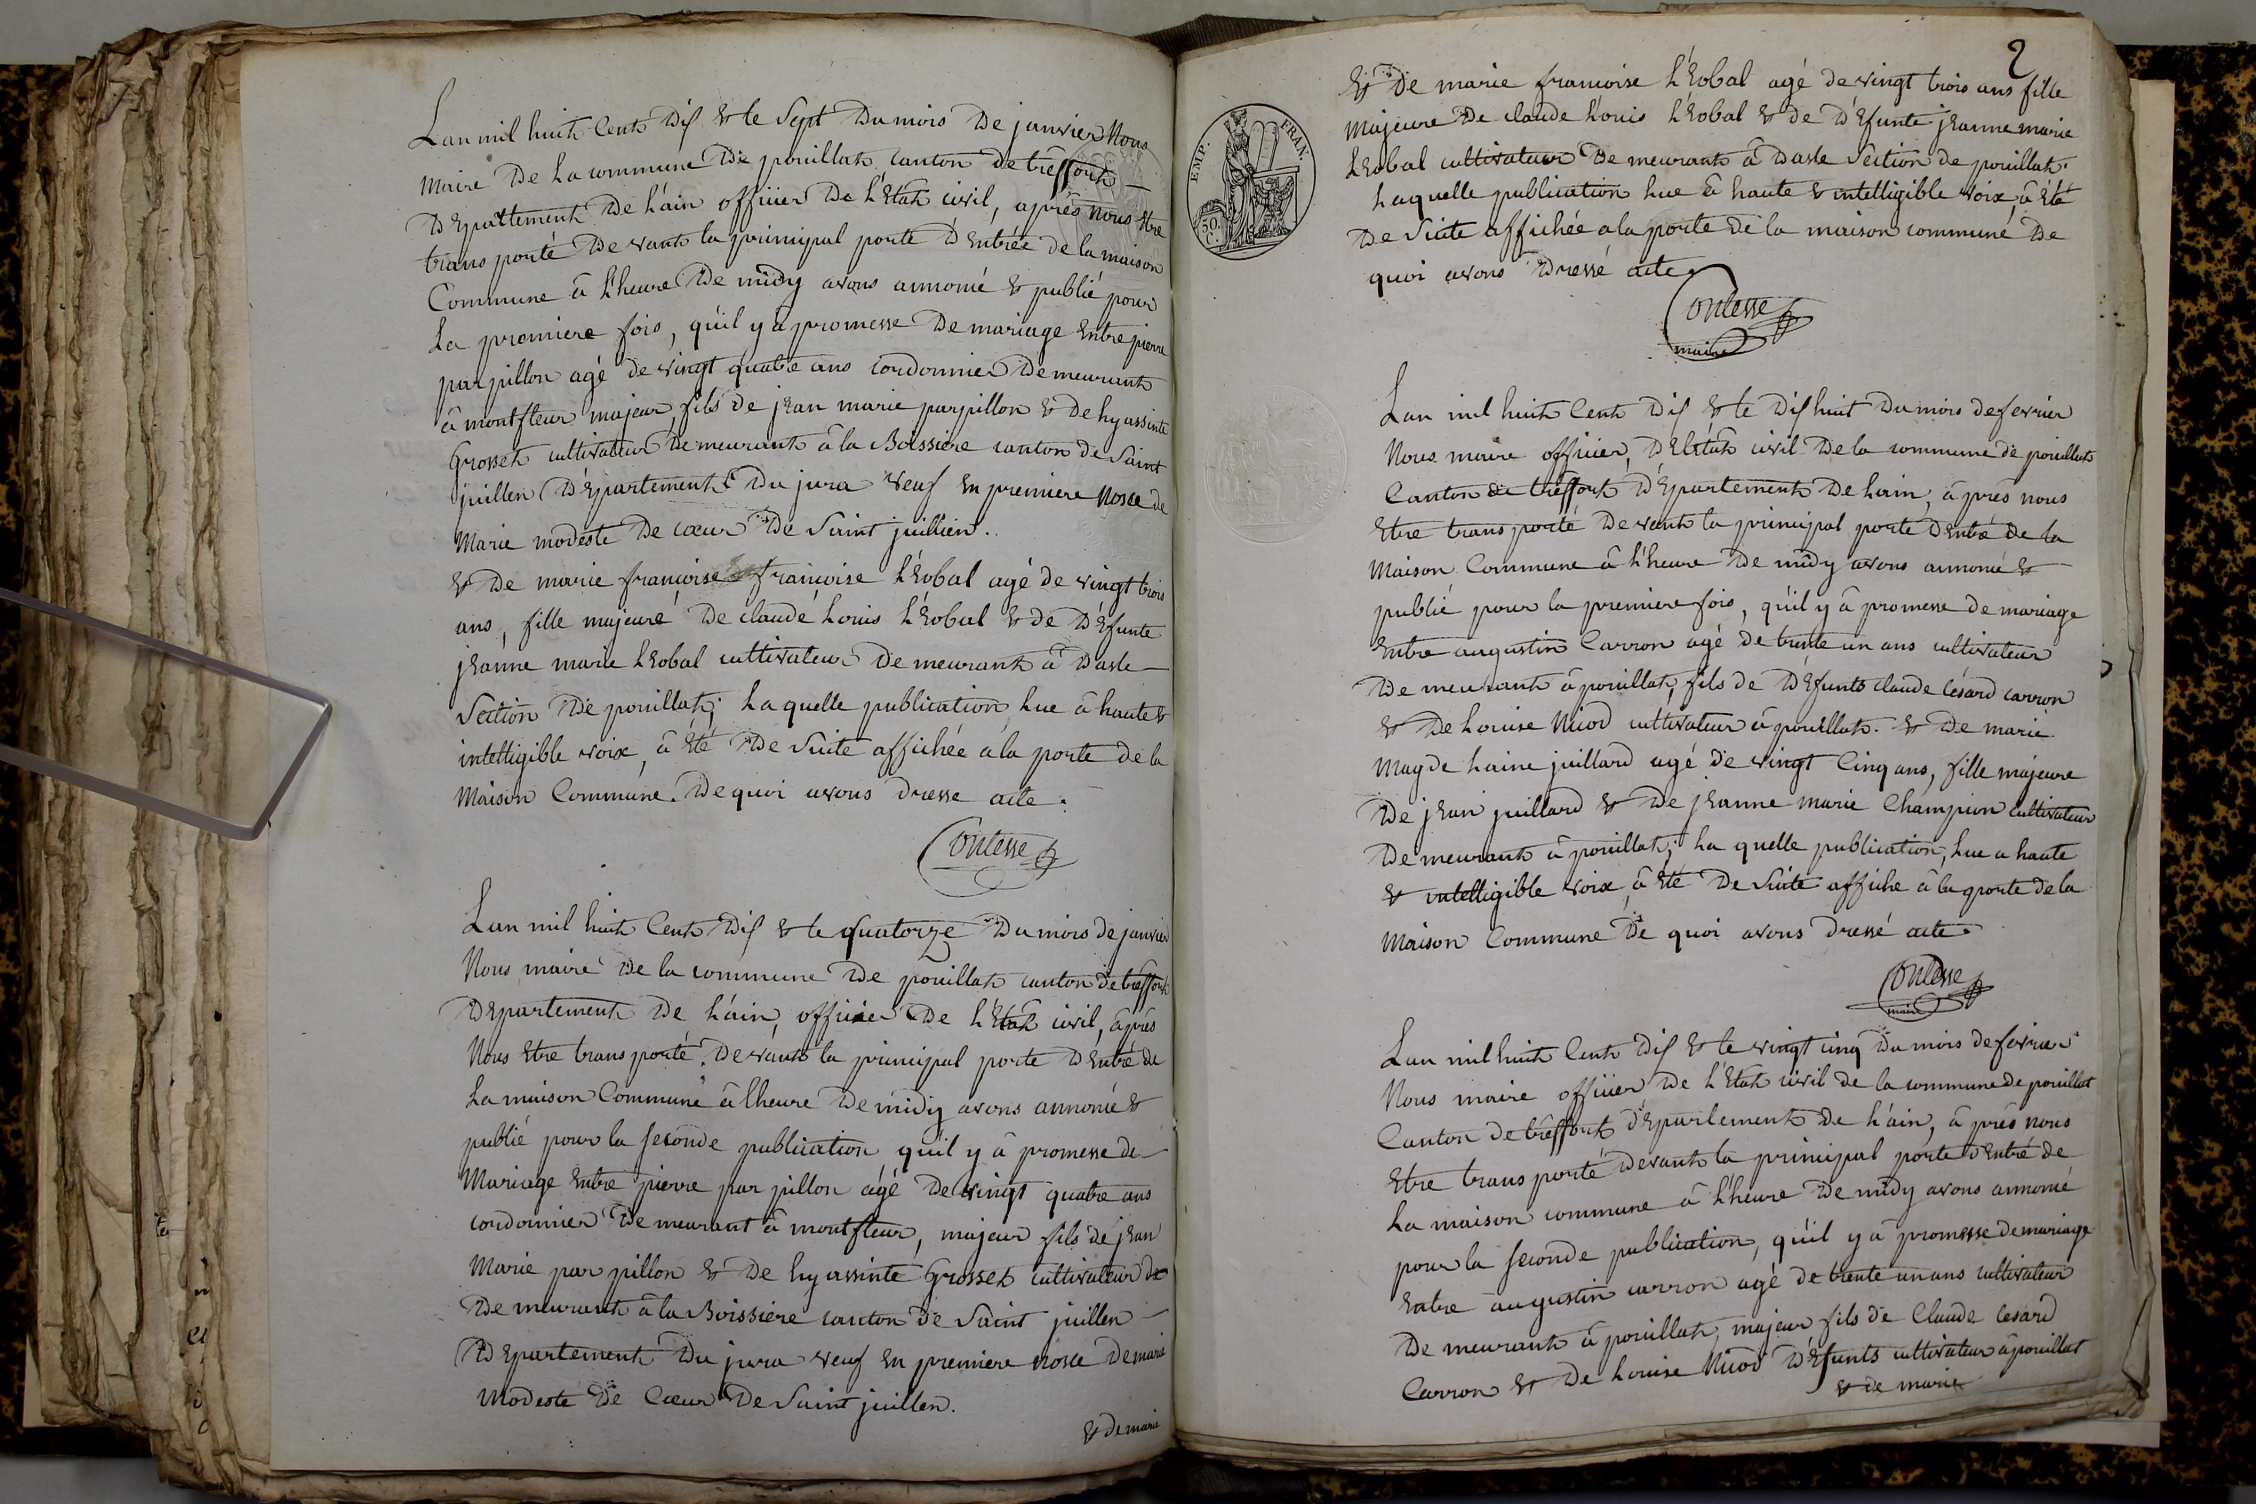 Lan mil huit Cent Dix & le Sept Du mois De janvier Nous
Maire De La commune De pouillat canton de tréffort
DEpartement De L'ain officier De L'Etat civil, aprés nous Etre
transporté De vant la principal porte D'Entrée de la maison
Commune â L'heure De midy avons annoncé & publié pour
La premiere fois, qu'il y a promesse De mariage Entre pierre
parpillon agé de vingt quatre ans cordonnier De meurant
â montfleur majeur, fils de jean marie parpillon & de hyassinte
Grosset cultivateur De meurant â la Boissiere canton de Saint
juillen DEpartement Du jura veuf En premiere Nosce de
Marie modeste De cœur De Saint juillien.
& De marie françoise françoise LEobal agé de vingt trois
ans, fille majeure De claude Louis LEobal & de DEfunte
jEanne marie LEobal cultivateur De meurant â Dasle
Section De pouillat; La quelle publication Lue â haute &
intelligible voix, â Eté De Suite affichée â la porte de la
Maison Commune. De quoi avons Dresse acte.
Contesse
Lan mil huit Cent Dix & le quatorze Du mois de janvier
Nous maire De la commune De pouillat canton de tréffort
DEpartement De L'ain, officier De L'Etat civil, âprés
Nous Etre transporté Devant la principal porte D'Entré de
La maison Commune â lheure De midy avons annoncé &
publié pour la seconde publication qu'il y â promesse de
Mariage Entre pierre par pillon âgé De vingt quatre ans
cordonnier De meurant â montfleur, majeur fils de jean
Marie par pillon & De hyassinte Grosset cultivateur de
De meurant â la Boissiere canton de Saint juillen
DEpartement Du jura veuf En premiere nosce De marie
Modeste De Cœur De Saint juillen.
& de marie
2
EMP. FRAN.
50. C.
& De marie francoise LEobal agé de vingt trois ans fille
Majeure De claude Louis LEobal & de DEfunte jEanne marie
LEobal cultivateur De meurant â Dasle Section de pouillat.
Laquelle publication Lue â haute & intelligible voix, â Eté
De Suite affichée a la porte de la maison commune De
quoi avons Dressé acte.
Contesse
maire
Lan mil huit Cent Dix & le Dix huit Du mois de fevrier
Nous maire officier, DE l'Etat civil De la commune de pouillat
Canton de tréffort DEpartement De Lain, âprés nous
Etre transporté Devant la principal porte D'Entré de la
Maison Commune â L'heure De midy avons annoncé &
publié pour la premiere fois, qu'il y â promesse de mariage
Entre augustin Carron agé de trente un ans cultivateur
De meurant â pouillat, fils de DEfunts claude Césard carron
& De Louise Nicod cultivateur â pouillat. & De marie
Magde Laine juillard agé de vingt Cinq ans, fille majeure
De jEan juillard & De jEanne marie Champion cultivateur
De meurant â pouillat; La quelle publication, Lue a haute
& intelligible voix, â Eté De Suite affiche â la porte de la
Maison Commune De quoi avons dressé acte.
Contesse
maire
Lan mil huit Cent Dix & le vingt cinq Du mois de fevrier
Nous maire officier De L'Etat civil de la commune de pouillat
Canton de tréffort DEpartement De L'ain, â prés nous
Etre transporté Devant la principal porte D'Entré de
La maison commune â L'heure De midy avons annoncé
pour la seconde publication, qu'il y â promesse de mariage
Entre augustin carron agé de trente un ans cultivateur
De meurant â pouillat, majeur fils de Claude Cesard
Carron & De Louise Nicod DEfunts cultivateur â pouillat
& de marie